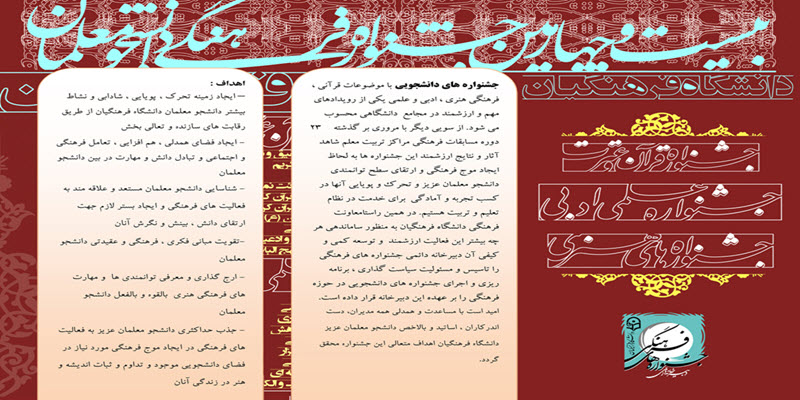 بیست و چهارمین جشنواره فرهنگی دانشجو معلمان
دانشگاه فرهنگیان
جشنواره قرآن و عترت
جشنواره علمی ادبی
جشنواره های هنری
جشنواره های فرهنگی
جشنواره های دانشجویی با موضوعات قرآنی ،
فرهنگی هنری ، ادبی و علمی یکی از رویدادهای
مهم و ارزشمند در مجامع دانشگاهی محسوب
می شود. از سویی دیگر با مروری بر گذشته ۲۳
دوره مسابقات فرهنگی مراکز تربیت معلم شاهد
آثار و نتایج ارزشمند این جشنواره ها به لحاظ
ایجاد موج فرهنگی و ارتقای سطح توانمندی
دانشجو معلمان عزیز و تحرک و پویایی آنها در
کسب تجربه و آمادگی برای خدمت در نظام
تعلیم و تربیت هستیم. در همین راستامعاونت
فرهنگی دانشگاه فرهنگیان به منظور ساماندهی هر
چه بیشتر این فعالیت ارزشمند و توسعه کمی و
کیفی آن دبیرخانه دائمی جشنواره های فرهنگی
را تاسیس و مسئولیت سیاست گذاری ، برنامه
ریزی و اجرای جشنواره های دانشجویی در حوزه
فرهنگی را بر عهده این دبیرخانه قرار داده است.
امید است با مساعدت و همدلی همه مدیران، دست
اندرکاران ، اساتید و بالاخص دانشجو معلمان عزیز
دانشگاه فرهنگیان اهداف متعالی این جشنواره محقق
گردد.
اهداف :
– ایجاد زمینه تحرک ، پویایی ، شادابی و نشاط
بیشتر دانشجو معلمان دانشگاه فرهنگیان از طریق
رقابت های سازنده و تعالی بخش
- ایجاد فضای همدلی ، هم افزایی ، تعامل فرهنگی
و اجتماعی و تبادل دانش و مهارت در بین دانشجو
معلمان
- شناسایی دانشجو معلمان مستعد و علاقه مند به
فعالیت های فرهنگی و ایجاد بستر لازم جهت
ارتقای دانش ، بینش و نگرش آنان
-تقویت مبانی فکری ، فرهنگی و عقیدتی دانشجو
معلمان
- ارج گذاری و معرفی توانمندی ها و مهارت
های فرهنگی هنری بالقوه و بالفعل دانشجو
معلمان
- جذب حداکثری دانشجو معلمان عزیز به فعالیت
های فرهنگی در ایجاد موج فرهنگی مورد نیاز در
فضای دانشجویی موجود و تداوم و ثبات اندیشه و
هنر در زندگی آنان